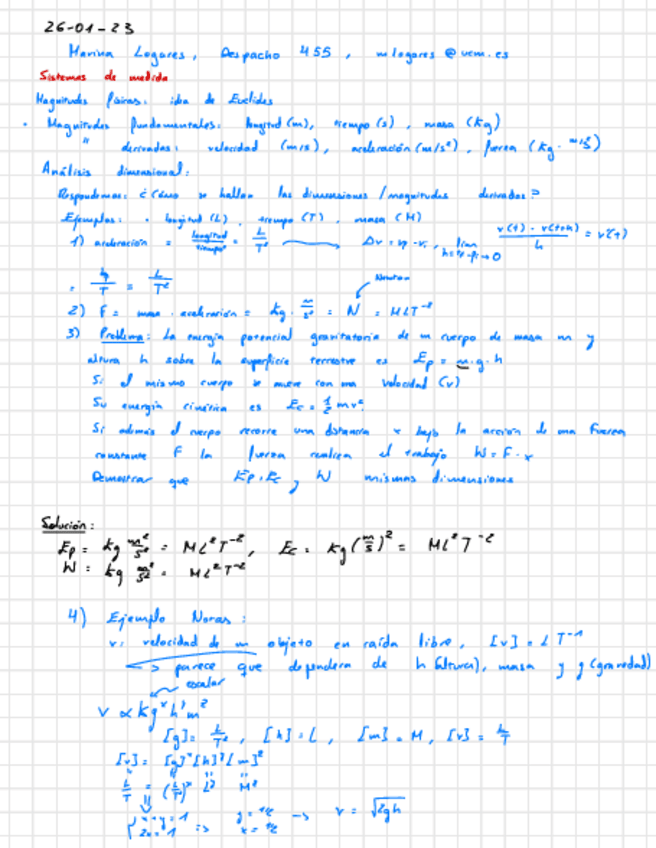 26-01-23
Marina Logares, Despacho 455, mlogares @ ucm.es
Sistemas de medida
Magnitudes físicas: idea de Euclides
· Magnitudes fundamentales: longitud (m), tiempo (s), masa (kg)
" derivadas: velocidad (m/s), aceleración (m/s²), fuerza (kg · m/s²)
Análisis dimensional:
Respondemos: ¿Cómo se hallan las dimensiones / magnitudes derivadas?
Ejemplos: · longitud (L), tiempo (T), masa (M)
1) aceleración = longitud/tiempo² = L/T² Δv = vf - vi, lim h=tf-ti→0 v(t) - v(t+h)/h = v'(t)
= L/T/T = L/T²
Newton
2) F = masa · aceleración = kg · m/s² = N = MLT⁻²
3) Problema: La energía potencial gravitatoria de un cuerpo de masa m y
altura h sobre la superficie terrestre es Ep = m·g·h
Si el mismo cuerpo se mueve con una velocidad (v)
Su energía cinética es Ec = ½ mv²
Si además el cuerpo recorre una distancia x bajo la acción de una fuerza
constante F la fuerza realiza el trabajo W = F · x
Demostrar que Ep, Ec y W mismas dimensiones
Solución:
Ep = kg m²/s² = ML²T⁻², Ec = kg (m/s)² = ML²T⁻²
W = kg m²/s² = ML²T⁻²
4) Ejemplo Notas:
v: velocidad de un objeto en caída libre, [v] = L T⁻¹
<-> parece que dependerá de h (altura), masa y g (gravedad)
escalar
v ∝ k gˣ hʸ mᶻ
[g] = L/T², [h] = L, [m] = M, [v] = L/T
[v] = [g]ˣ [h]ʸ [m]ᶻ
L/T = (L/T²)ˣ Lʸ Mᶻ
{x+y=1 2x=1 => y=1/2 x=1/2 -> v = √2gh